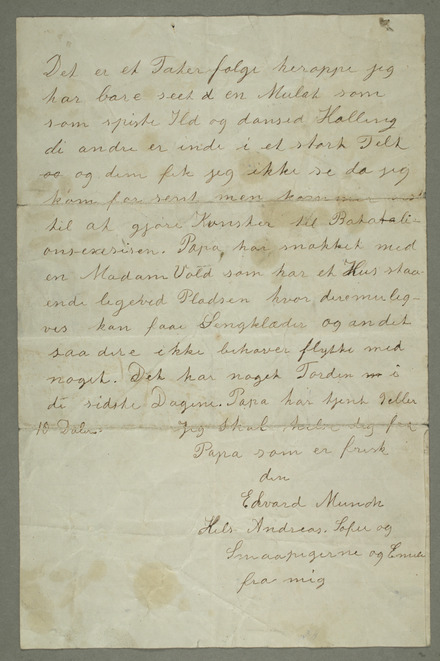 Det er et Taterfølge heroppe jeg
har bare seet d en Mulat som
som spiste Ild og dansed Halling
di andre er inde i et stort Telt
og og dem fik jeg ikke se da jeg
kom for sent men kommer
til at gjøre Kunster til Batatali-
onsexersisen. Papa har snakket med
en Madam Vold som har et Hus staa
ende ligeved Pladsen hvor deremulig-
vis kan faae Sengklæder og andet
saa dere ikke behøver flytte med
noget. Det har noget Torden m i
di sidste Dagene. Papa har tjent 7 eller
10 Daler. Jeg skal hilse dig fra
Papa som er frisk
din
Edvard Munch
Hils Andreas. Sofie og
Smaapigerne og Emilie
fra mig